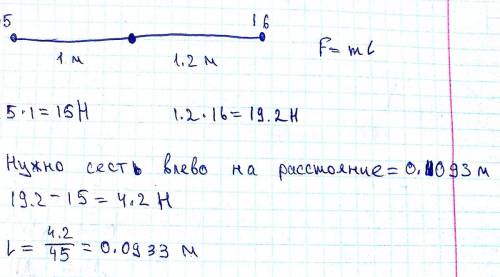 5 16
1 м 1.2 м F = mL
5·1=15Н 1.2·16=19.2Н
Нужно сесть влево на расстояние=0.1093м
19.2-15=4.2 Н
L= 4.2/45 = 0.0933 м